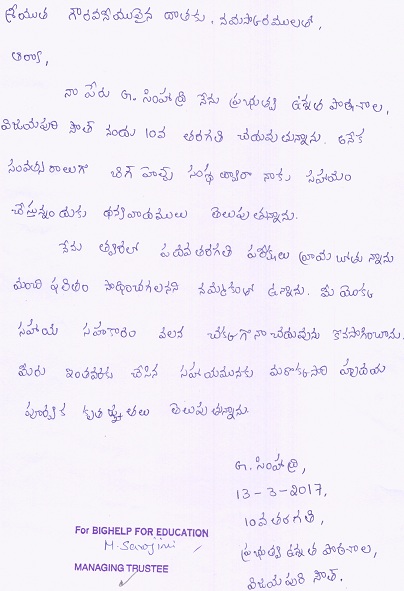 శ్రీయుత గౌరవనీయులైన దాతకు, నమస్కారములతో,
ఆర్యా,
నా పేరు G. సింహాద్రి నేను ప్రభుత్వ ఉన్నత పాఠశాల,
విజయపురి సౌత్ నందు 10వ తరగతి చదువుతున్నాను. అనేక
సంవత్సరాలుగా బిగ్ హెల్ప్ సంస్థ ద్వారా నాకు సహాయం
చేస్తున్నందుకు ధన్యవాదములు తెలుపుతున్నాను.
నేను త్వరలో పదవతరగతి పరీక్షలు వ్రాయబోతున్నాను
మంచి ఫలితం సాధించగలనని నమ్మకంతో ఉన్నాను. మీ యొక్క
సహాయ సహకారం వలన చక్కగా నా చదువును కొనసాగించాను.
మీరు ఇంతవరకు చేసిన సహాయమునకు మరొక్కసారి హృదయ
పూర్వక కృతజ్ఞతలు తెలుపుతున్నాను.
G. సింహాద్రి,
13-3-2017,
10వ తరగతి,
ప్రభుత్వ ఉన్నత పాఠశాల,
విజయపురి సౌత్.
For BIGHELP FOR EDUCATION
M. Sarojini
MANAGING TRUSTEE